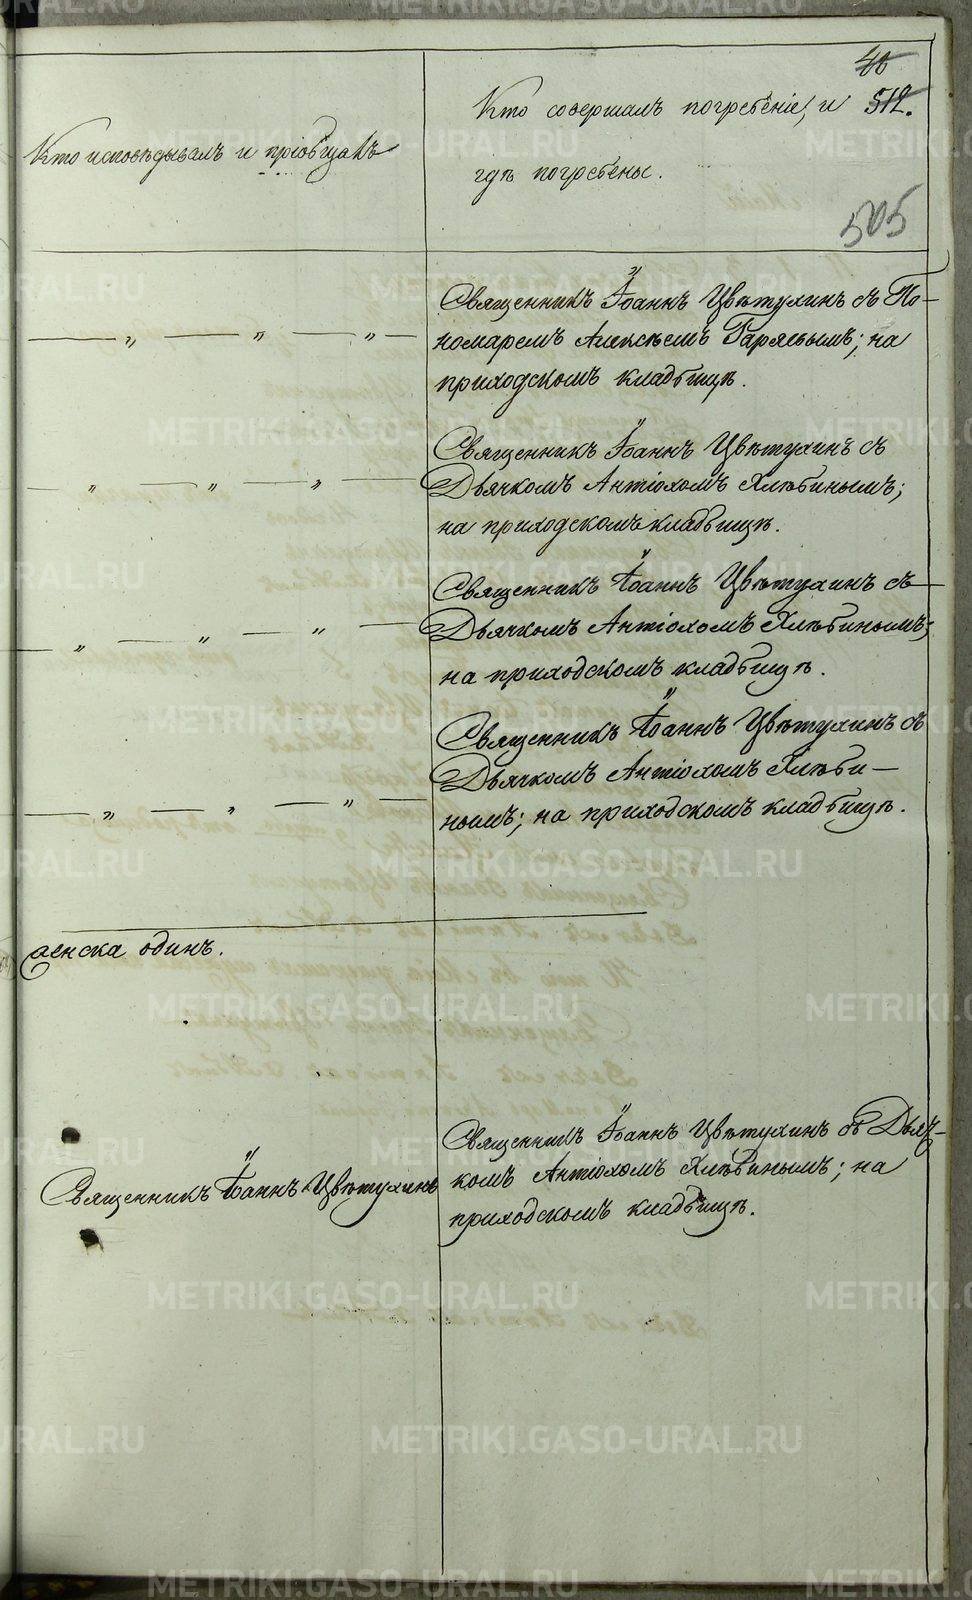 46
512.
505
Кто исповѣдывалъ и пріобщалъ
Кто совершалъ погребеніе, и
гдѣ погребены.
Священникъ Іоаннъ Цвѣтухинъ съ По-
— „ — „ — „ —
номаремъ Алексѣемъ Гаряевымъ; на
приходскомъ кладбищѣ.
Священникъ Іоаннъ Цвѣтухинъ съ
— „ — „ — „ —
Дьячкомъ Антіохомъ Хлѣбинымъ;
на приходскомъ кладбищѣ.
Священникъ Іоаннъ Цвѣтухинъ съ
— „ — „ — „ —
Дьячкомъ Антіохомъ Хлѣбинымъ;
на приходскомъ кладбищѣ.
Священникъ Іоаннъ Цвѣтухинъ съ
Дьячкомъ Антіохомъ Хлѣби-
— „ — „ — „ —
нымъ; на приходскомъ кладбищѣ.
женска одинъ.
Священникъ Іоаннъ Цвѣтухинъ
Священникъ Іоаннъ Цвѣтухинъ съ Дьяч-
комъ Антіохомъ Хлѣбинымъ; на
приходскомъ кладбищѣ.
METRIKI.GASO-URAL.RU